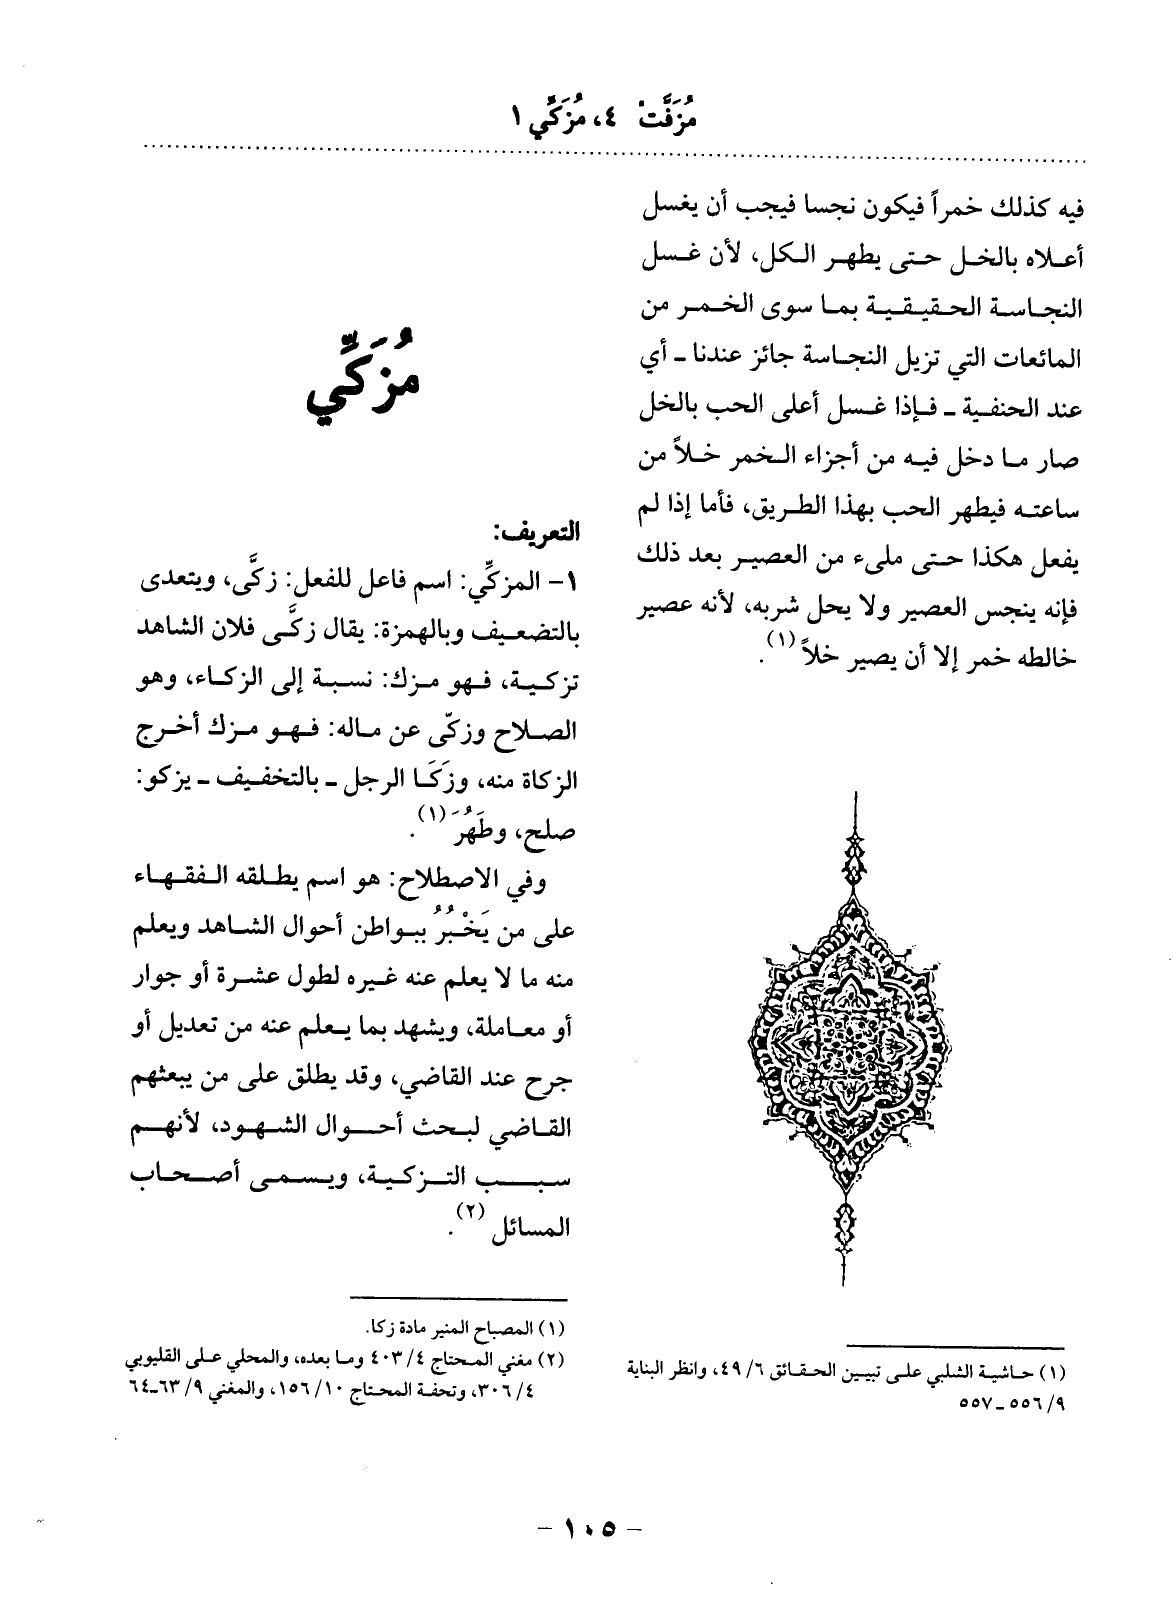 مُزَفَّتْ ٤، مُزَكِّي ١
فيه كذلك خمراً فيكون نجسا فيجب أن يغسل
أعلاه بالخل حتى يطهر الكل، لأن غسل
النجاسة الحقيقية بما سوى الخمر من
المائعات التي تزيل النجاسة جائز عندنا ـ أي
عند الحنفية ـ فإذا غسل أعلى الحب بالخل
صار ما دخل فيه من أجزاء الخمر خلاً من
ساعته فيطهر الحب بهذا الطريق، فأما إذا لم
يفعل هكذا حتى مليء من العصير بعد ذلك
فإنه ينجس العصير ولا يحل شربه، لأنه عصير
خالطه خمر إلا أن يصير خلاً (١).
(١) حاشية الشلبي على تبيين الحقائق ٦/ ٤٩، وانظر البناية
٩/ ٥٥٦ ـ ٥٥٧
مُزَكِّي
التعريف:
١- المزكِّي: اسم فاعل للفعل: زكَّى، ويتعدى
بالتضعيف وبالهمزة: يقال زكَّى فلان الشاهد
تزكية، فهو مزك: نسبة إلى الزكاء، وهو
الصلاح وزكّى عن ماله: فهو مزك أخرج
الزكاة منه، وزَكَا الرجل ـ بالتخفيف ـ يزكو:
صلح، وطَهُرَ (١).
وفي الاصطلاح: هو اسم يطلقه الفقهاء
على من يَخْبُرُ ببواطن أحوال الشاهد ويعلم
منه ما لا يعلم عنه غيره لطول عشرة أو جوار
أو معاملة، ويشهد بما يعلم عنه من تعديل أو
جرح عند القاضي، وقد يطلق على من يبعثهم
القاضي لبحث أحوال الشهود، لأنهم
سبب التزكية، ويسمى أصحاب
المسائل (٢).
(١) المصباح المنير مادة زكا.
(٢) مغني المحتاج ٤/ ٤٠٣ وما بعده، والمحلي على القليوبي
٤/ ٣٠٦، وتحفة المحتاج ١٠/ ١٥٦، والمغني ٩/ ٦٣ـ٦٤
- ١٠٥ -